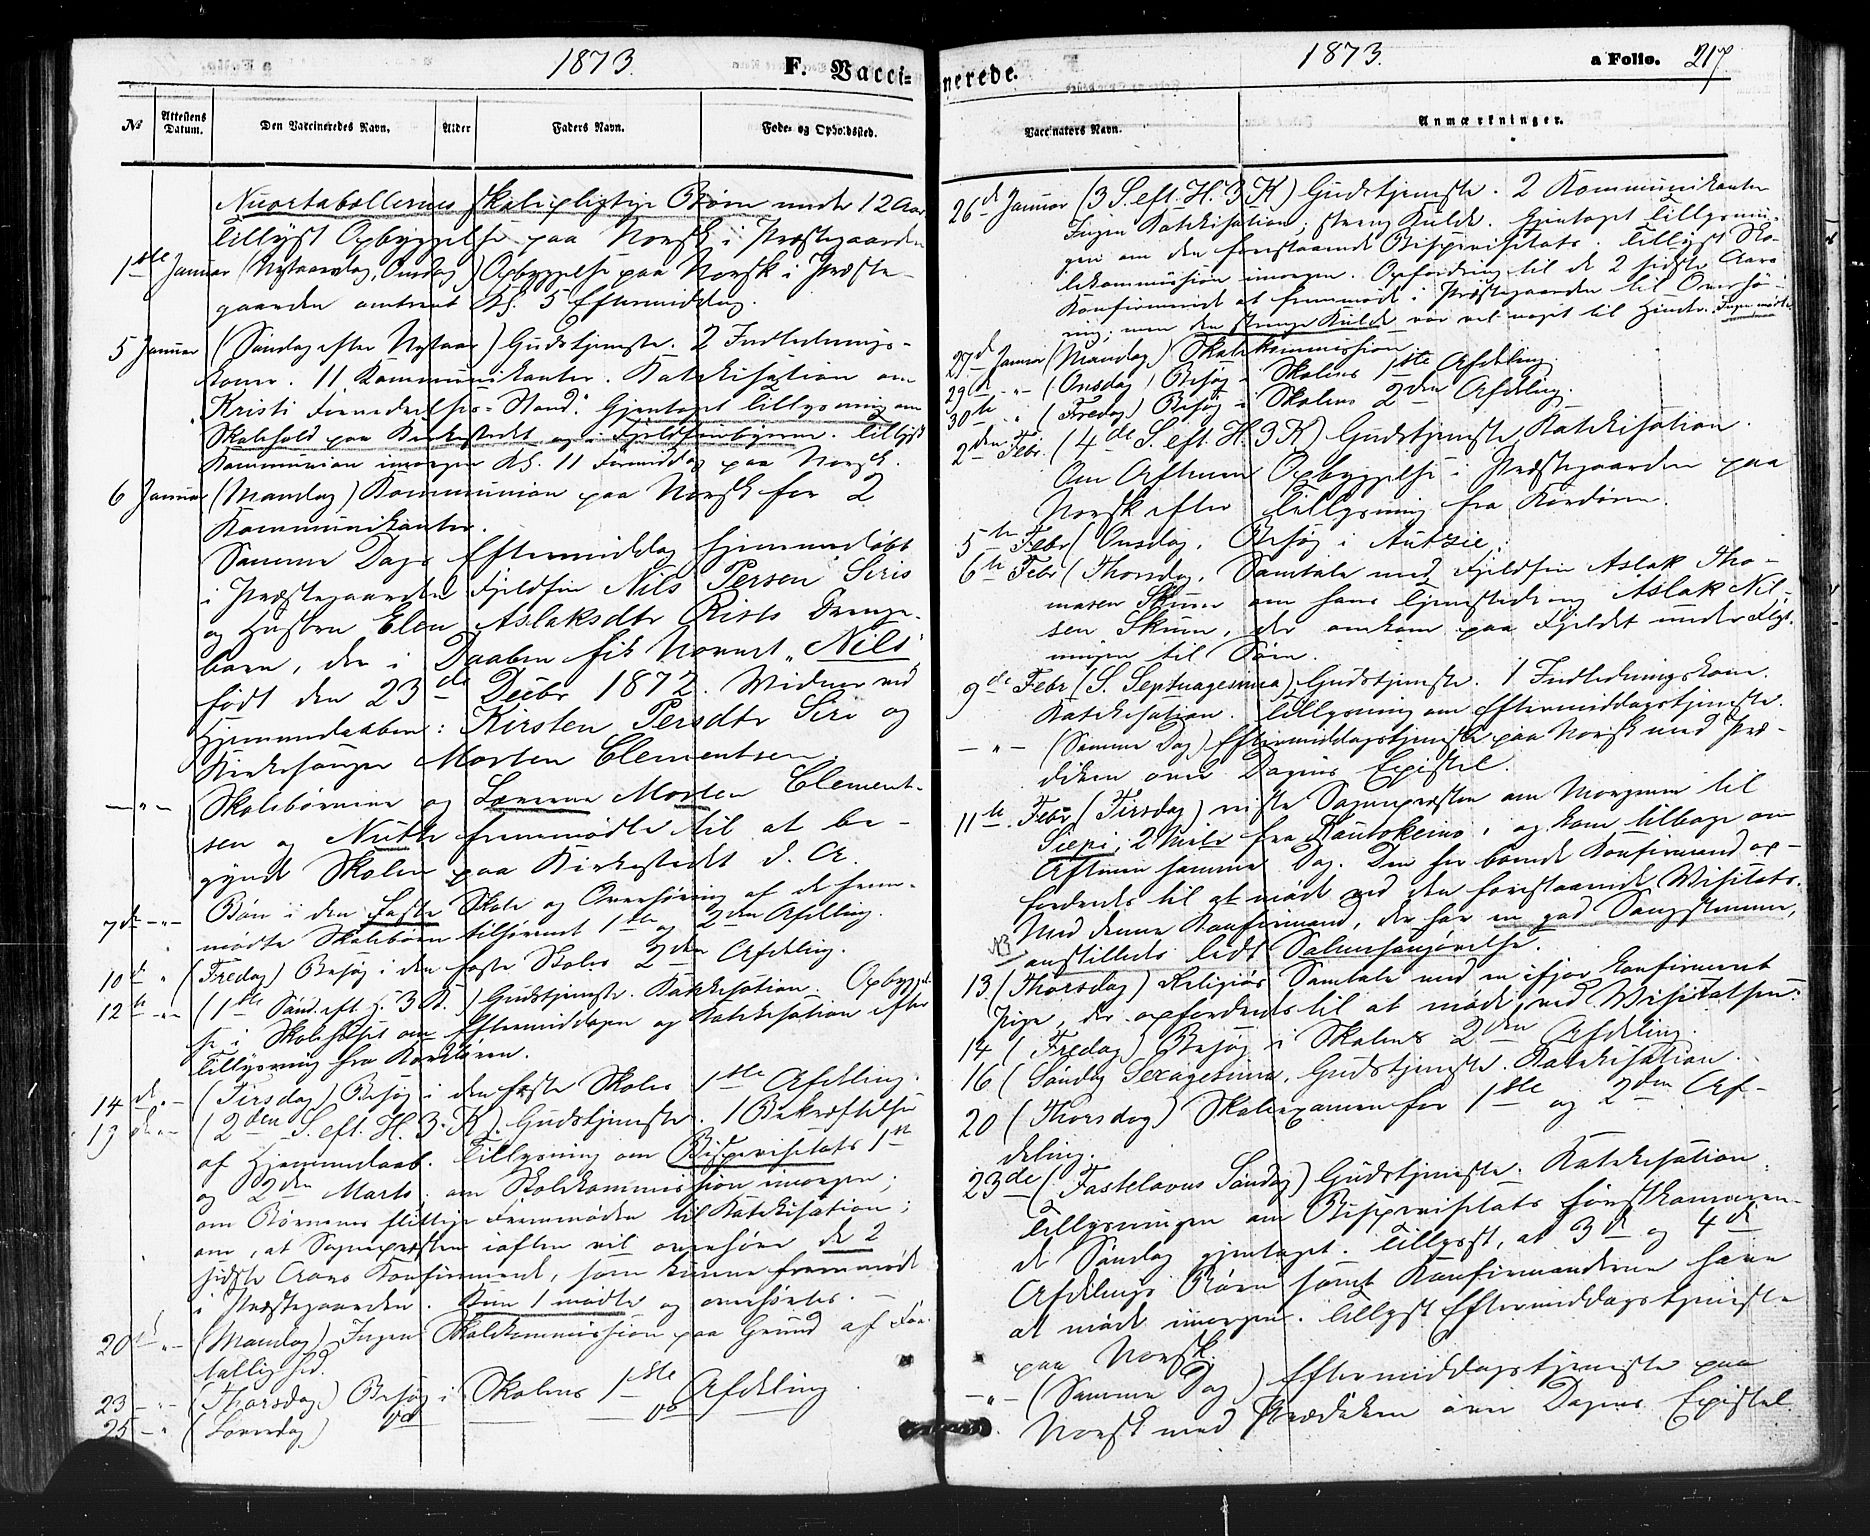 1873.
F. Vacci-
№
Attestens Datum.
Den Vaccineredes Navn.
Alder
Faders Navn.
Føde- og Opholdssted.
Nuortabellernes skolepligtige Børn under 12 Aar.
Tillyst Opbyggelse paa Norsk i Præstegaarden
1ste Januar (Nytaarsdag, Onsdag) Opbyggelse paa Norsk i Præste-
gaarden omtrent Kl. 5 Eftermiddag.
5 Januar (Søndag efter Nytaar) Gudstjeneste. 2 Indlednings-
koner. 11 Kommunikanter. Katekisation om
"Kristi Fornedrelses-Stand". Gjentaget Tillysning om
Skolehold paa Kirkestedet og i Fjeldfinbyerne. Tillyst
Kommunion imorgen Kl. 11 Formiddag paa Norsk.
6 Januar (Mandag) Kommunion paa Norsk for 2
Kommunikanter.
Samme Dags Eftermiddag hjemmedøbt
i Præstegaarden Fjeldfin Nils Persen Siris
og Hustru Elen Aslaksdtr Rists Drenge-
barn, der i Daaben fik Navnet "Nils"
født den 23de Decbr 1872. Widner ved
Hjemmedaaben: Kirsten Persdtr Siri og
Kirkesanger Morten Clementsen
— " — Skolebørnene og Lærerne Morten Clement-
sen og Nutte fremmødte til at be-
gynde Skolen paa Kirkestedet d. A.
7de — " — Bøn i den faste Skole og Overhøring af de frem-
mødte Skolebørn tilhørende 1ste og 2den Afdeling.
10de " (Fredag) Besøg i den faste Skoles 2den Afdeling.
12te — " — (1ste Sønd. eft. H. 3 K.) Gudstjeneste. Katekisation. Opbyggel-
se i Skolehuset om Eftermiddagen og Katekisation efter
Tillysning fra Kordøren.
14de " — (Tirsdag) Besøg i den faste Skoles 1ste Afdeling.
19de " — (2den S. eft. H. 3 K.) Gudstjeneste. 1 Bekræftelse
af Hjemmedaab. Tillysning om Bispevisitats 1ste
og 2den Marts, om Skolekommission imorgen;
om Børnenes flittige Fremmøden til Katekisation;
om, at Sognepræsten iaften vil overhøre de 2
sidste Aars Konfirmerede, som kunne fremmøde
i Præstegaarden. Kun 1 mødte og overhørtes. —
20de " — (Mandag) Ingen Skolekommission paa Grund af Faa-
tallighed.
23 — " — (Thorsdag) Besøg i Skolens 1ste Afdeling.
25 — " (Løverdag)
nerede.
1873.
a Folio. 217
Vaccinators Navn.
Anmærkninger.
26de Januar (3 S. eft. H. 3 K) Gudstjeneste. 2 Kommunikanter
Ingen Katekisation; streng Kulde. Gjentaget Tillysnin-
gen om den forestaaende Bispevisitats. Tillyst Sko-
lekommission imorgen. Opfordring til de 2 sidste Aars
Konfirmerede at fremmøde i Præstegaarden til Overhø-
ring; men den strenge Kulde var vel noget til Hinder. Ingen mødte
27de Januar (Mandag) Skolekommission.
29de " — (Onsdag) Besøg i Skolens 1ste Afdeling.
30te " (Fredag) Besøg i Skolens 2den Afdeling.
2den Febr. (4de S. eft. H. 3 K) Gudstjeneste. Katekisation.
Om Aftenen Opbyggelse i Præstegaarden paa
Norsk efter Tillysning fra Kordøren.
5te Febr (Onsdag. Besøg i Autzie.
6te Febr (Thorsdag. Samtale med Fjeldfin Aslak Tho-
masen Skum om hans Tjenestedreng Aslak Nil-
sen Skum, der omkom paa Fjeldet under Flyt-
ningen til Søen.
9de Febr (S. Septuagesima) Gudstjeneste. 1 Indledningskone.
Katekisation. Tillysning om Eftermiddagstjeneste.
— " — (Samme Dag) Eftermiddagstjeneste paa Norsk med Præ-
diken over Dagens Epistel.
11te Febr (Tirsdag) reiste Sognepræsten om Morgenen til
Siepi, 2 Mile fra Kautokeino, og kom tilbage om
Aftenen samme Dag. Den her boende Konfirmand op-
fordredes til at møde ved den forestaaende Visitats.
NB Med denne Konfirmand, der har en god Sangstemme,
anstilledes lidt Salmesangøvelse.
13 (Thorsdag) Religiøs Samtale med en ifjor konfirmeret
Pige, der opfordredes til at møde ved Visitatsen.
14 (Fredag) Besøg i Skolens 2den Afdeling.
16 (Søndag Sexagesima. Gudstjeneste. Katekisation.
20 (Thorsdag) Skoleexamen for 1ste og 2den Af-
deling.
23de (Fastelavns Søndag) Gudstjeneste. Katekisation.
Tillysningen om Bispevisitats førstkommen-
de Søndag gjentaget. Tillyst, at 3de og 4de
Afdelings Børn samt Konfirmanderne have
at møde imorgen. Tillyst Eftermiddagstjeneste
paa Norsk.
— " — (Samme Dag) Eftermiddagstjeneste paa
Norsk med Prædiken over Dagens Epistel.